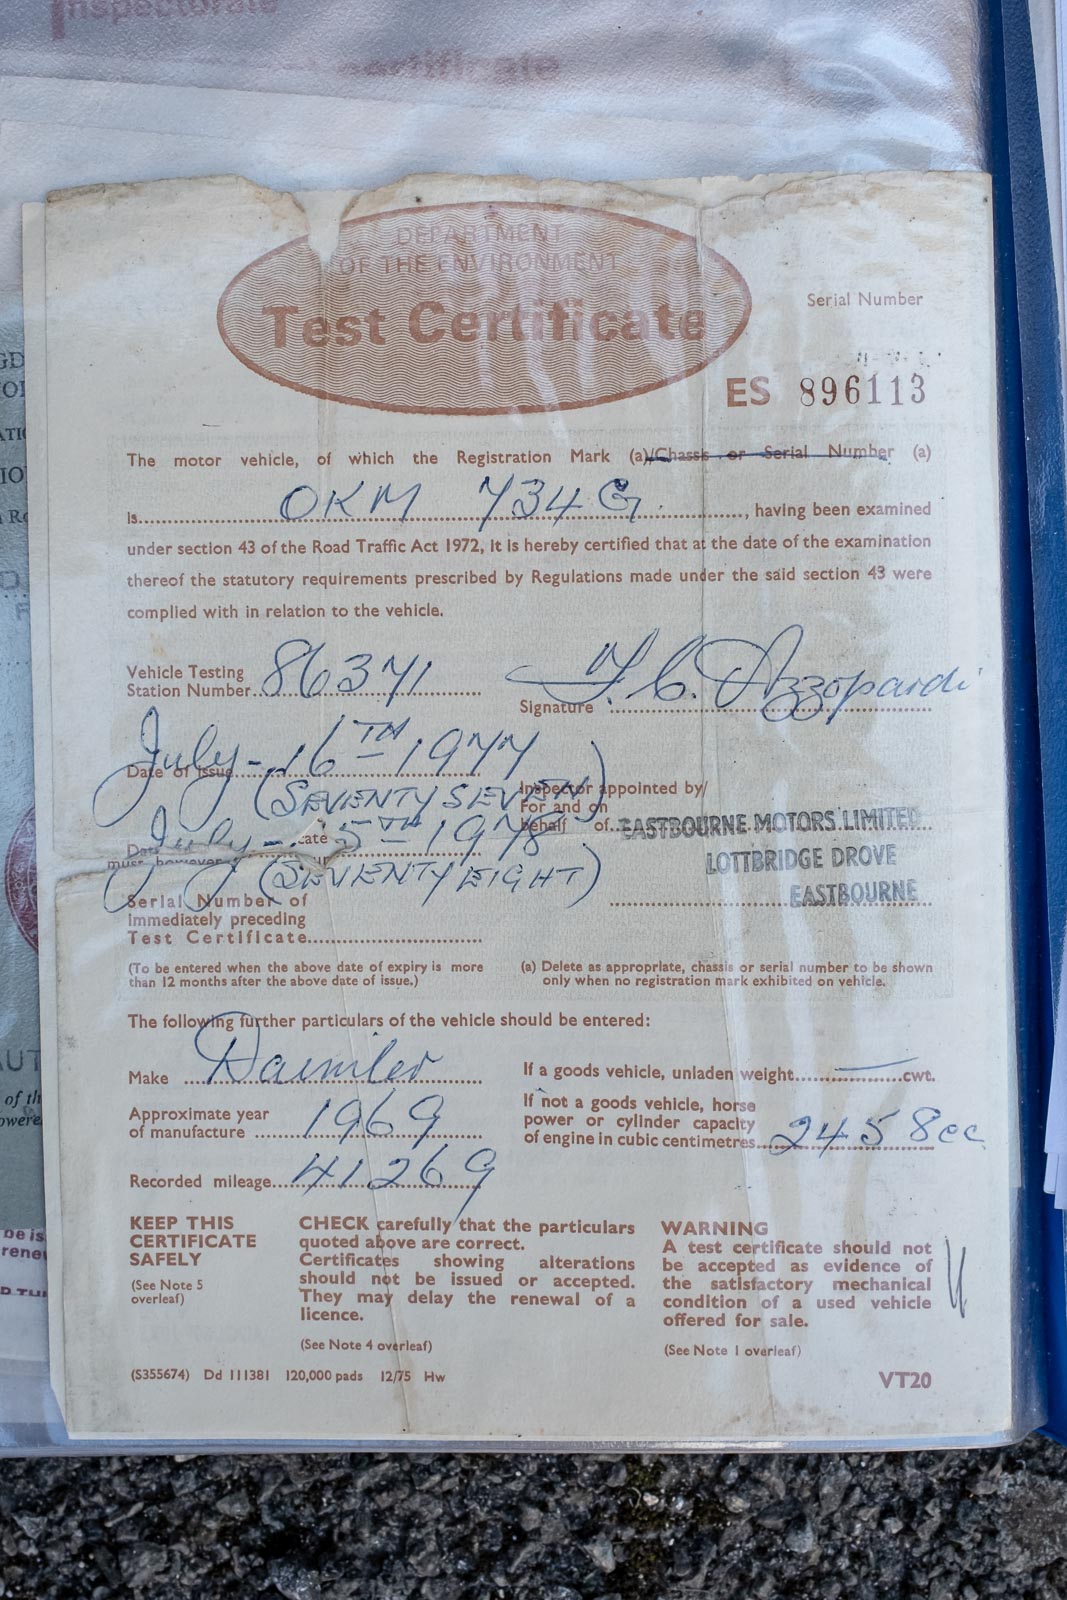 Inspectorate
certificate
DEPARTMENT
OF THE ENVIRONMENT
Test Certificate
Serial Number
ES 896113
The motor vehicle, of which the Registration Mark (a)/Chassis or Serial Number (a)
is OKM 734G, having been examined
under section 43 of the Road Traffic Act 1972, it is hereby certified that at the date of the examination
thereof the statutory requirements prescribed by Regulations made under the said section 43 were
complied with in relation to the vehicle.
Vehicle Testing
Station Number 86371
Signature F. C. Azzopardi
Date of issue July - 16TH 1977
(SEVENTY SEVEN)
July - 5TH 1978
must however
(SEVENTY EIGHT)
Inspector appointed by/
For and on
behalf of EASTBOURNE MOTORS LIMITED
LOTTBRIDGE DROVE
EASTBOURNE
Serial Number of
immediately preceding
Test Certificate
(To be entered when the above date of expiry is more
than 12 months after the above date of issue.)
(a) Delete as appropriate, chassis or serial number to be shown
only when no registration mark exhibited on vehicle.
The following further particulars of the vehicle should be entered:
Make Daimler
Approximate year
of manufacture 1969
Recorded mileage 41269
If a goods vehicle, unladen weight — cwt.
If not a goods vehicle, horse
power or cylinder capacity
of engine in cubic centimetres 2458cc
KEEP THIS
CERTIFICATE
SAFELY
(See Note 5
overleaf)
CHECK carefully that the particulars
quoted above are correct.
Certificates showing alterations
should not be issued or accepted.
They may delay the renewal of a
licence.
(See Note 4 overleaf)
WARNING
A test certificate should not
be accepted as evidence of
the satisfactory mechanical
condition of a used vehicle
offered for sale.
(See Note 1 overleaf)
(S355674) Dd 111381 120,000 pads 12/75 Hw
VT20